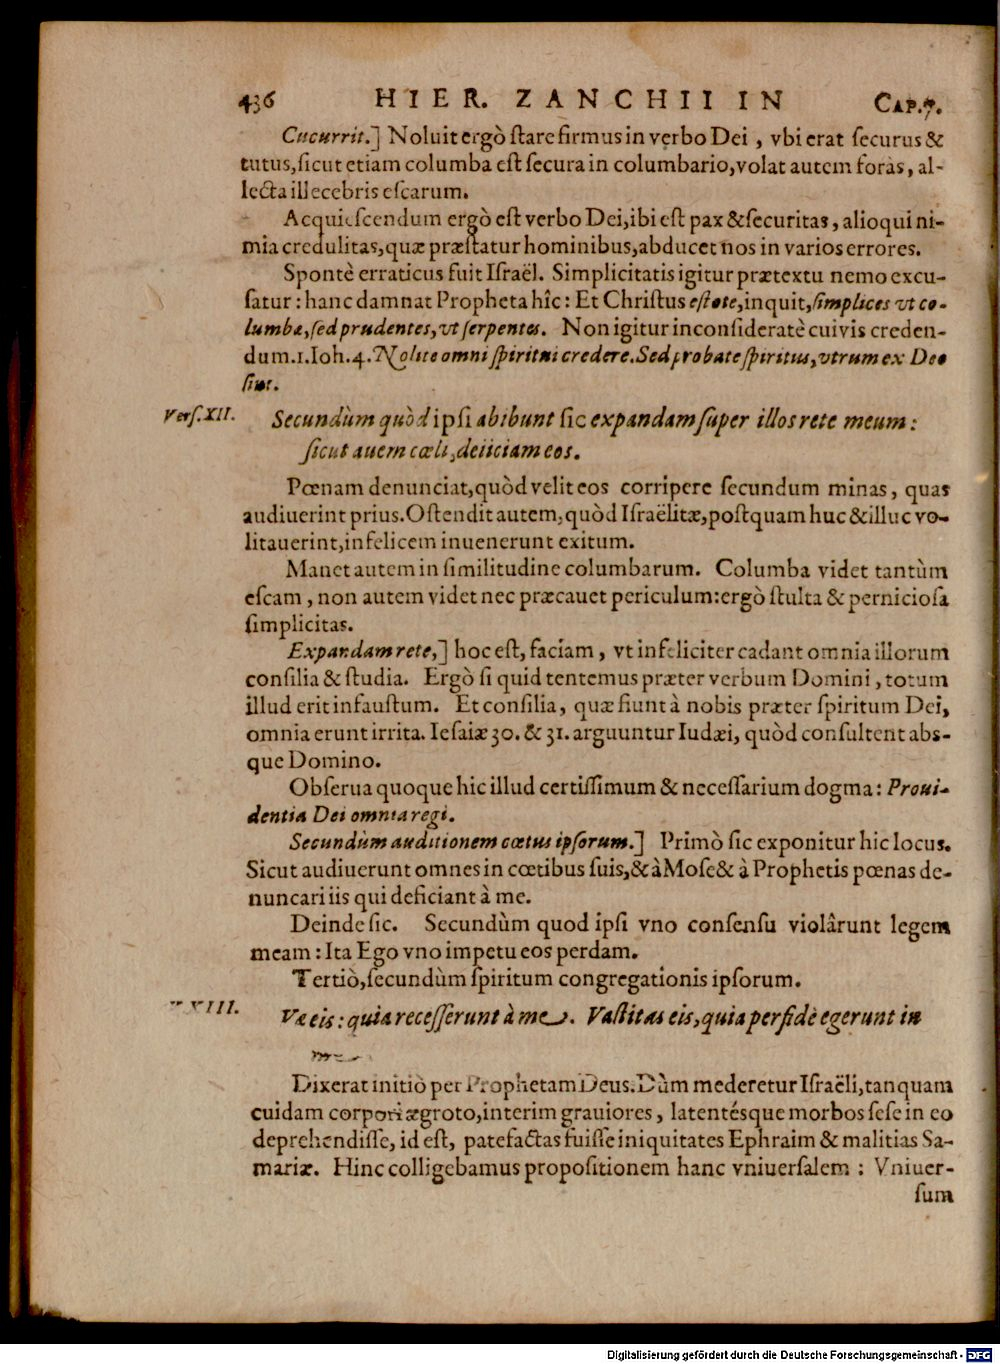 436 HIER. ZANCHII IN CAP.7.
Cucurrit.] Noluit ergò ſtare firmus in verbo Dei, vbi erat ſecurus &
tutus, ſicut etiam columba eſt ſecura in columbario, volat autem foràs, al-
lecta illecebris eſcarum.
Acquieſcendum ergò eſt verbo Dei, ibi eſt pax & ſecuritas, alioqui ni-
mia credulitas, quæ præſtatur hominibus, abducet nos in varios errores.
Spontè erraticus fuit Iſraël. Simplicitatis igitur prætextu nemo excu-
ſatur: hanc damnat Propheta hîc: Et Chriſtus eſtote, inquit, ſimplices vt co-
lumbæ, ſed prudentes, vt ſerpentes. Non igitur inconſideratè cuivis creden-
dum. 1. Ioh. 4. Nolite omni ſpiritui credere. Sed probate ſpiritus, vtrum ex Deo
ſint.
Verſ. XII. Secundùm quòd ipſi abibunt ſic expandam ſuper illos rete meum:
ſicut auem cœli, deiiciam eos.
Pœnam denunciat, quòd velit eos corripere ſecundum minas, quas
audiuerint prius. Oſtendit autem, quòd Iſraëlitæ, poſtquam huc & illuc vo-
litauerint, infelicem inuenerunt exitum.
Manet autem in ſimilitudine columbarum. Columba videt tantùm
eſcam, non autem videt nec præcauet periculum: ergò ſtulta & pernicioſa
ſimplicitas.
Expandam rete,] hoc eſt, faciam, vt infeliciter cadant omnia illorum
conſilia & ſtudia. Ergò ſi quid tentemus præter verbum Domini, totum
illud erit infauſtum. Et conſilia, quæ fiunt à nobis præter ſpiritum Dei,
omnia erunt irrita. Ieſaiæ 30. & 31. arguuntur Iudæi, quòd conſultent abs-
que Domino.
Obſerua quoque hic illud certiſſimum & neceſſarium dogma: Proui-
dentia Dei omnia regi.
Secundùm auditionem cœtus ipſorum.] Primò ſic exponitur hic locus.
Sicut audiuerunt omnes in cœtibus ſuis, & à Moſe & à Prophetis pœnas de-
nuncari iis qui deficiant à me.
Deinde ſic. Secundùm quod ipſi vno conſenſu violârunt legem
meam: Ita Ego vno impetu eos perdam.
Tertiò, ſecundùm ſpiritum congregationis ipſorum.
XIII. Væ eis: quia receſſerunt à me. Vaſtitas eis, quia perfidè egerunt in
me.
Dixerat initiò per Prophetam Deus. Dùm mederetur Iſraëli, tanquam
cuidam corpori ægroto, interim grauiores, latentésque morbos ſeſe in eo
deprehendiſſe, id eſt, patefactas fuiſſe iniquitates Ephraim & malitias Sa-
mariæ. Hinc colligebamus propoſitionem hanc vniuerſalem: Vniuer-
ſum
Digitalisierung gefördert durch die Deutsche Forschungsgemeinschaft - DFG